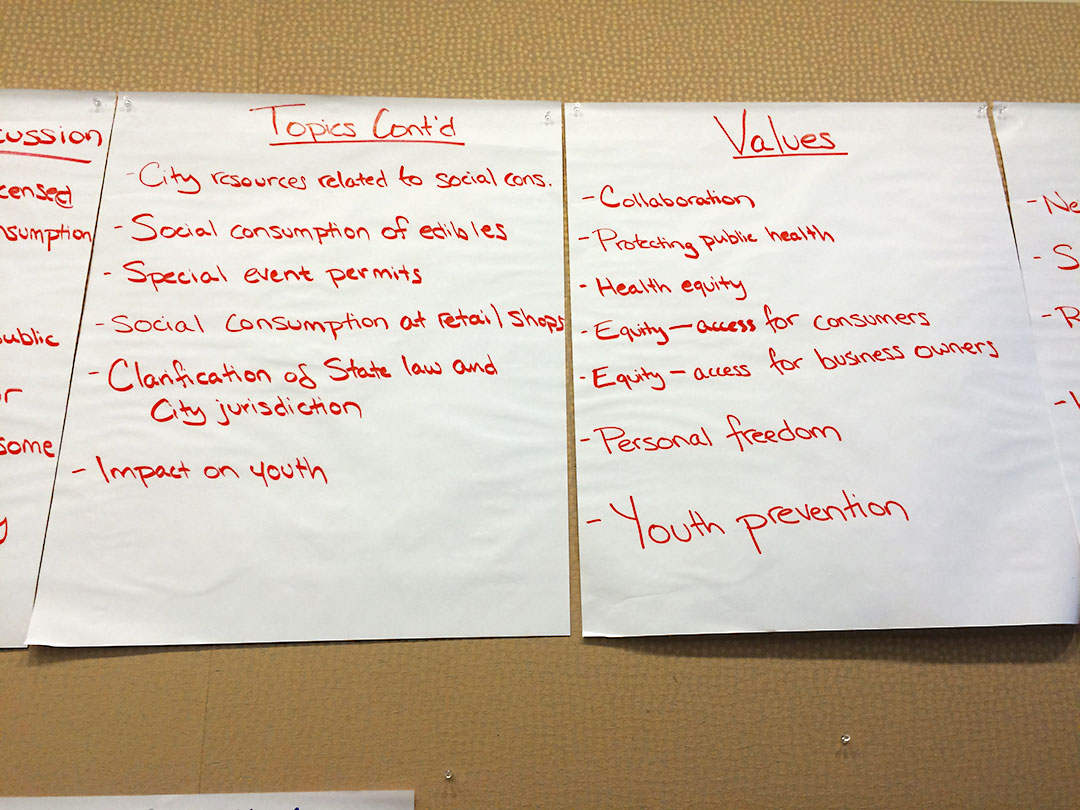 cussion
censed
nsumption
ublic
r
some
Topics Cont'd
- City resources related to social cons.
- Social consumption of edibles
- Special event permits
- Social consumption at retail shops
- Clarification of State law and
City jurisdiction
- Impact on youth
Values
- Collaboration
- Protecting public health
- Health equity
- Equity — access for consumers
- Equity — access for business owners
- Personal freedom
- Youth prevention
- Ne
- S
- R